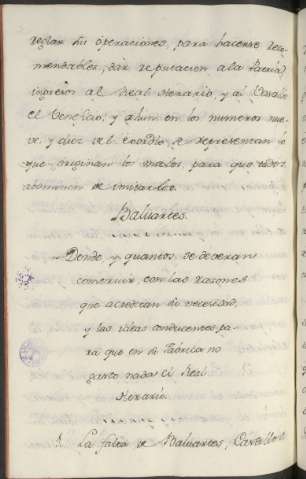 reglar sus operaciones, para hacerse reco-
mendables, dàr reputacion a la Patria,
ingresos al Real Herario, y al Vasallo
el beneficio; y ahun en los numeros nue-
ve, y diez del Exordio, se representan lo
que originan los malos, para que todos
abominen de imitarlos.
Baluartes.
Donde, y quantos se deveran
construir, con las razones
que acreditan su necesidad,
y las ideas conducentes, pa-
ra que en su Fabrica no
gaste nada el Real
Herario.
1. La falta de Baluartes,